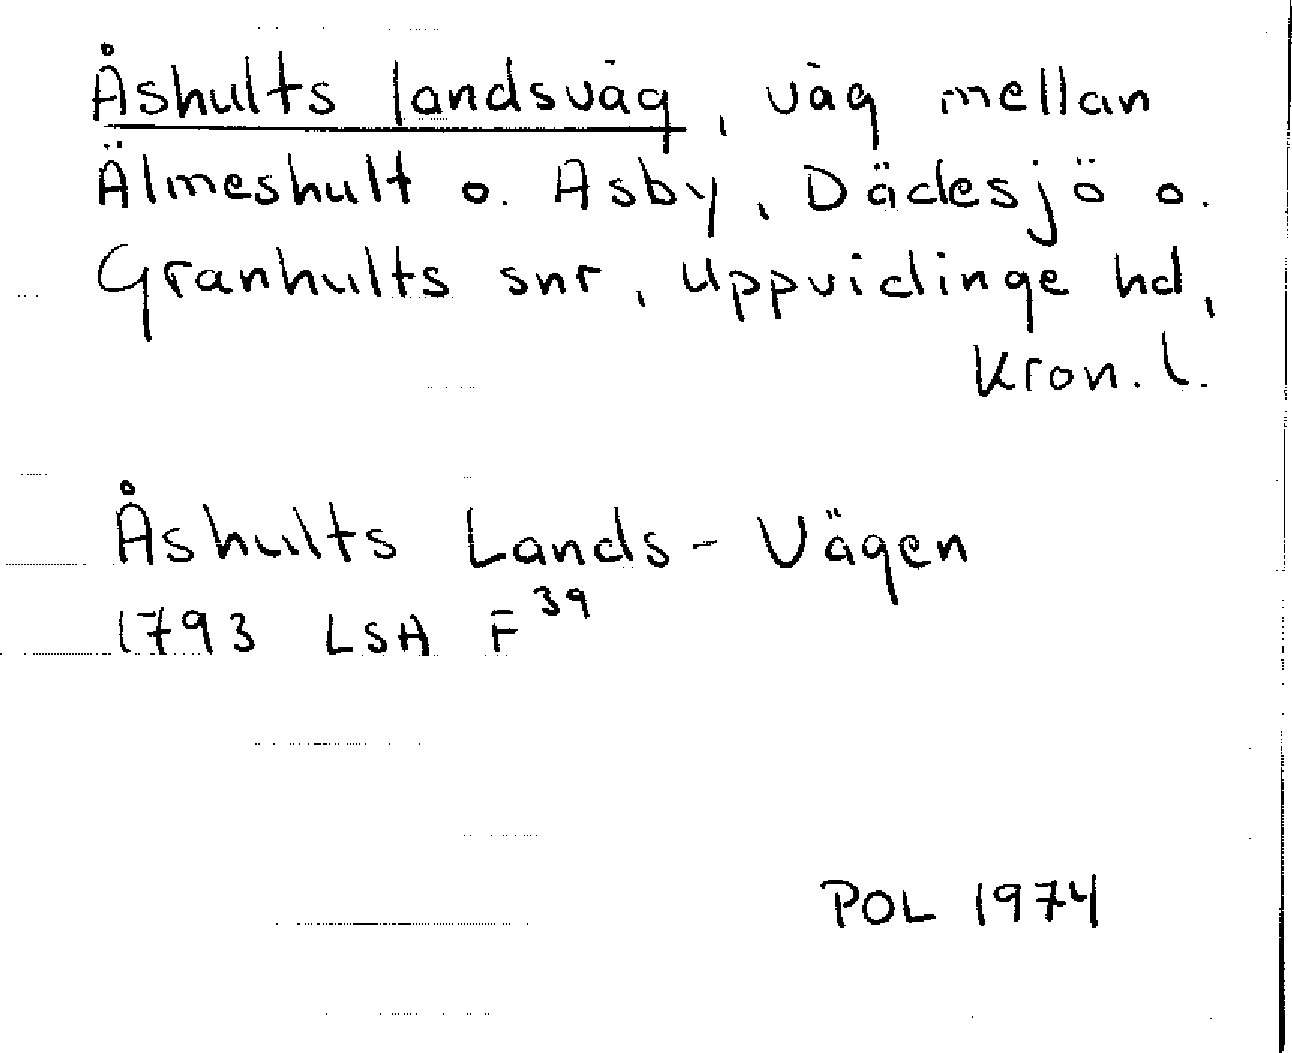 Åshults landsväg, väg mellan
Älmeshult o. Asby, Dädesjö o.
Granhults snr, Uppvidinge hd,
Kron. l.
Åshults Lands-Vägen
1793 LSA F 39
POL 1974